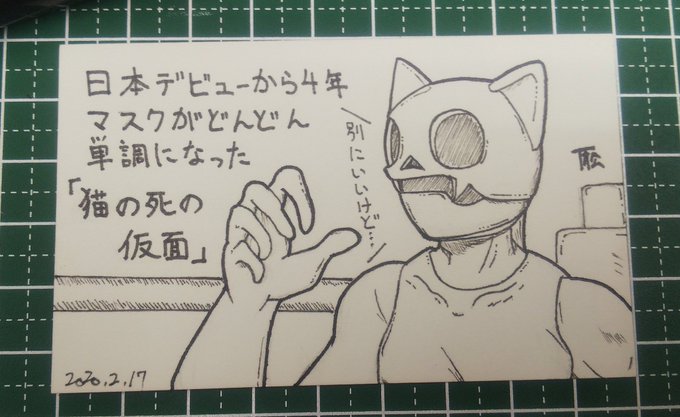 日本デビューから4年
マスクがどんどん
単調になった
「猫の死の
仮面」
別にいいけど…
2020.2.17